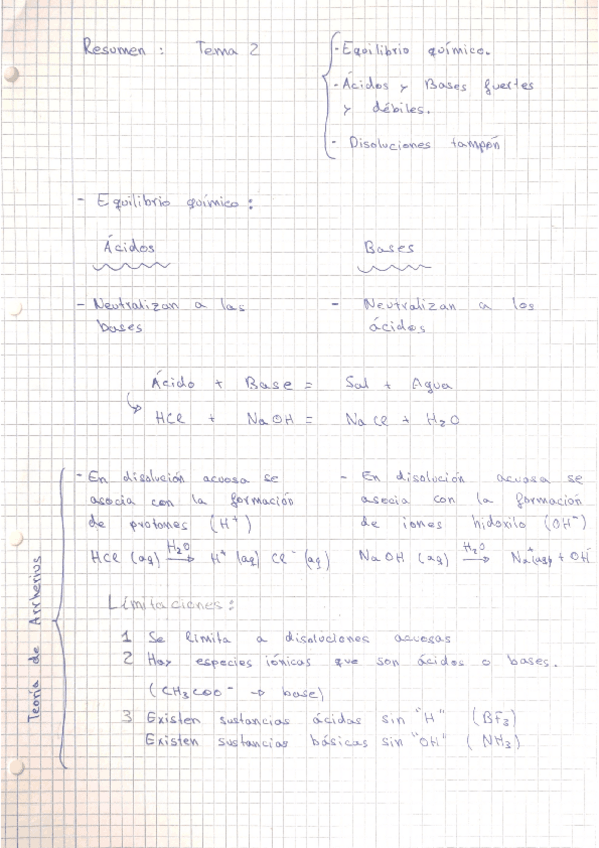 Resumen : Tema 2
- Equilibrio químico.
- Ácidos y Bases fuertes
y débiles.
- Disoluciones tampón
- Equilibrio químico :
Ácidos Bases
- Neutralizan a las - Neutralizan a los
bases ácidos
Ácido + Base = Sal + Agua
HCl + NaOH = NaCl + H₂O
- En disolución acuosa se - En disolución acuosa se
asocia con la formación asocia con la formación
de protones (H⁺) de iones hidoxilo (OH⁻)
HCl (aq) H₂O → H⁺ (aq) Cl⁻ (aq) NaOH (aq) H₂O → Na⁺(aq) + OH⁻
Limitaciones :
1 Se limita a disoluciones acuosas
2 Hay especies iónicas que son ácidos o bases.
(CH₃COO⁻ → base)
3 Existen sustancias ácidas sin "H" (BF₃)
Existen sustancias básicas sin "OH" (NH₃)
Teoría de Arrherius